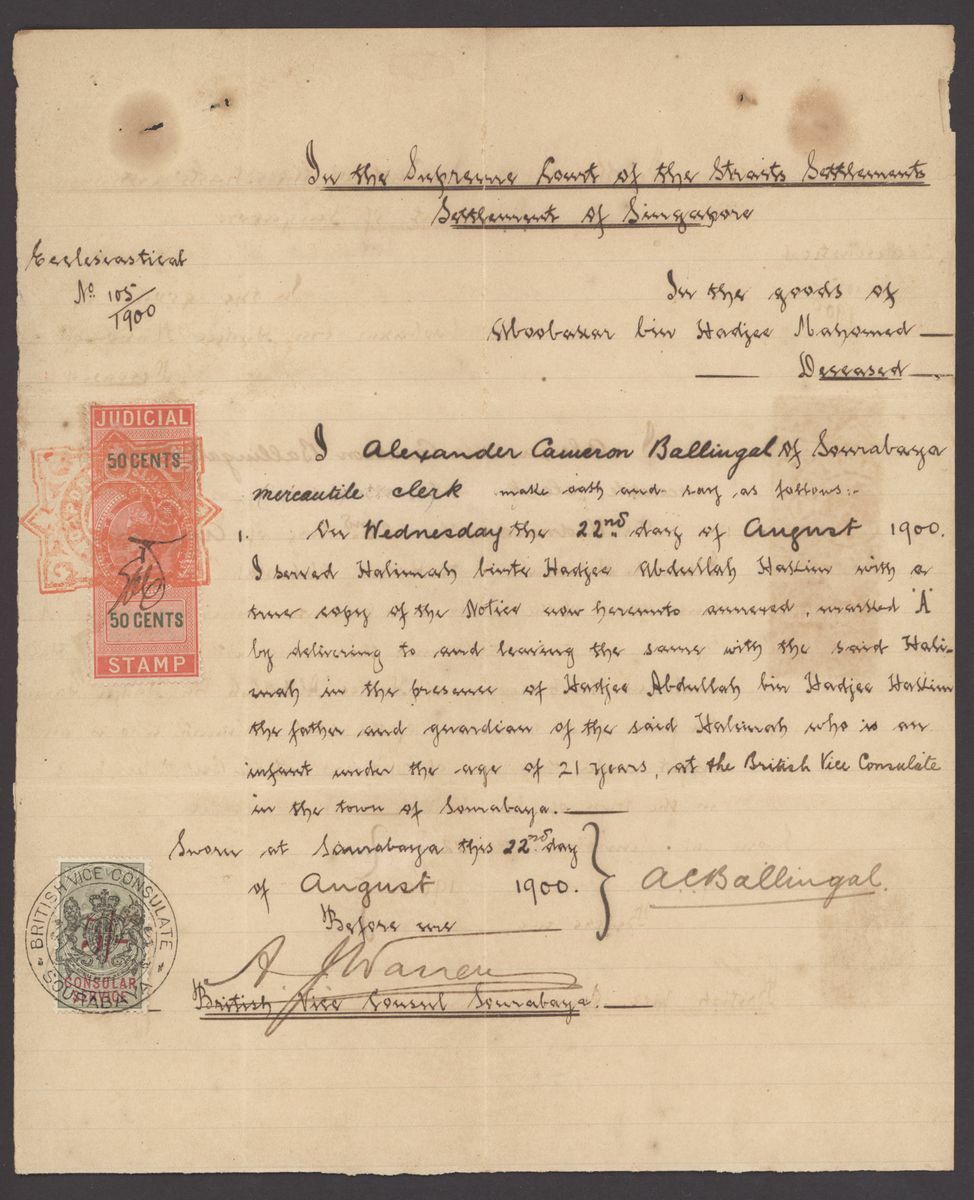 In the Supreme Court of the Straits Settlements
Settlement of Singapore
Ecclesiastical
No 105/1900
In the goods of
Aboobakar bin Hadjee Mahomed
Deceased
JUDICIAL
50 CENTS
50 CENTS
STAMP
I Alexander Cameron Ballingal of Sourabaya
mercautile clerk make oath and say as follows:-
1. On Wednesday the 22nd day of August 1900.
I served Halimah binte Hadjee Abdullah Hakim with a
true copy of the Notice now hereunto annexed, marked "A"
by delivering to and leaving the same with the said Hali-
mah in the presence of Hadjee Abdullah bin Hadjee Hakim
the father and guardian of the said Halimah who is an
infant under the age of 21 years, at the British Vice Consulate
in the town of Sourabaya.
Sworn at Sourabaya this 22nd day
of August 1900.
Before me
A C Ballingal.
A. J Warren
British Vice Consul Sourabaya.
BRITISH VICE CONSULATE
SOURABAYA
CONSULAR
SERVICE